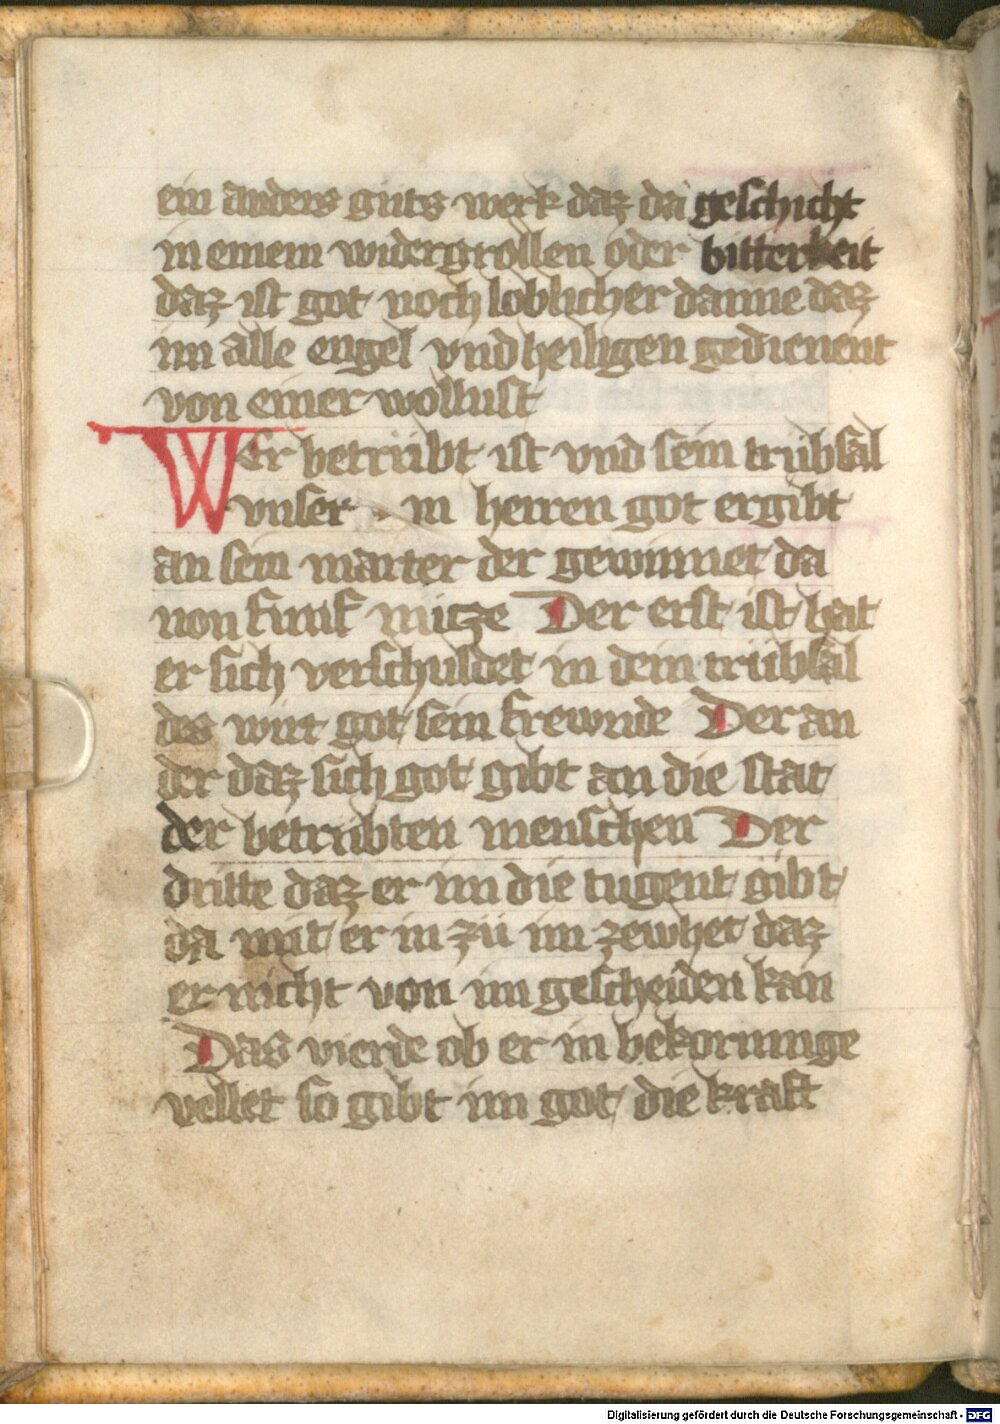 ein anders guts werk daz da geschicht
in einem widergrollen oder bitterkeit
daz ist got noch loblicher danne daz
im alle engel vnd heiligen gedienent
von einer wollust
Wer betrübt ist vnd sein trübsal
vnser in herren got ergibt
an sein marter der gewinnet da
von funf nutze Der erst ist hat
er sich verschuldet in dem trübsal
des wirt got sein frewnde Der an
der daz sich got gibt an die stat
der betrubten menschen Der
dritte daz er im die tugent gibt
da mit er in zü im zewhet daz
er nicht von im gescheiden kan
Das vierde ob er in bekorunge
vellet so gibt im got die kraft
Digitalisierung gefördert durch die Deutsche Forschungsgemeinschaft - DFG